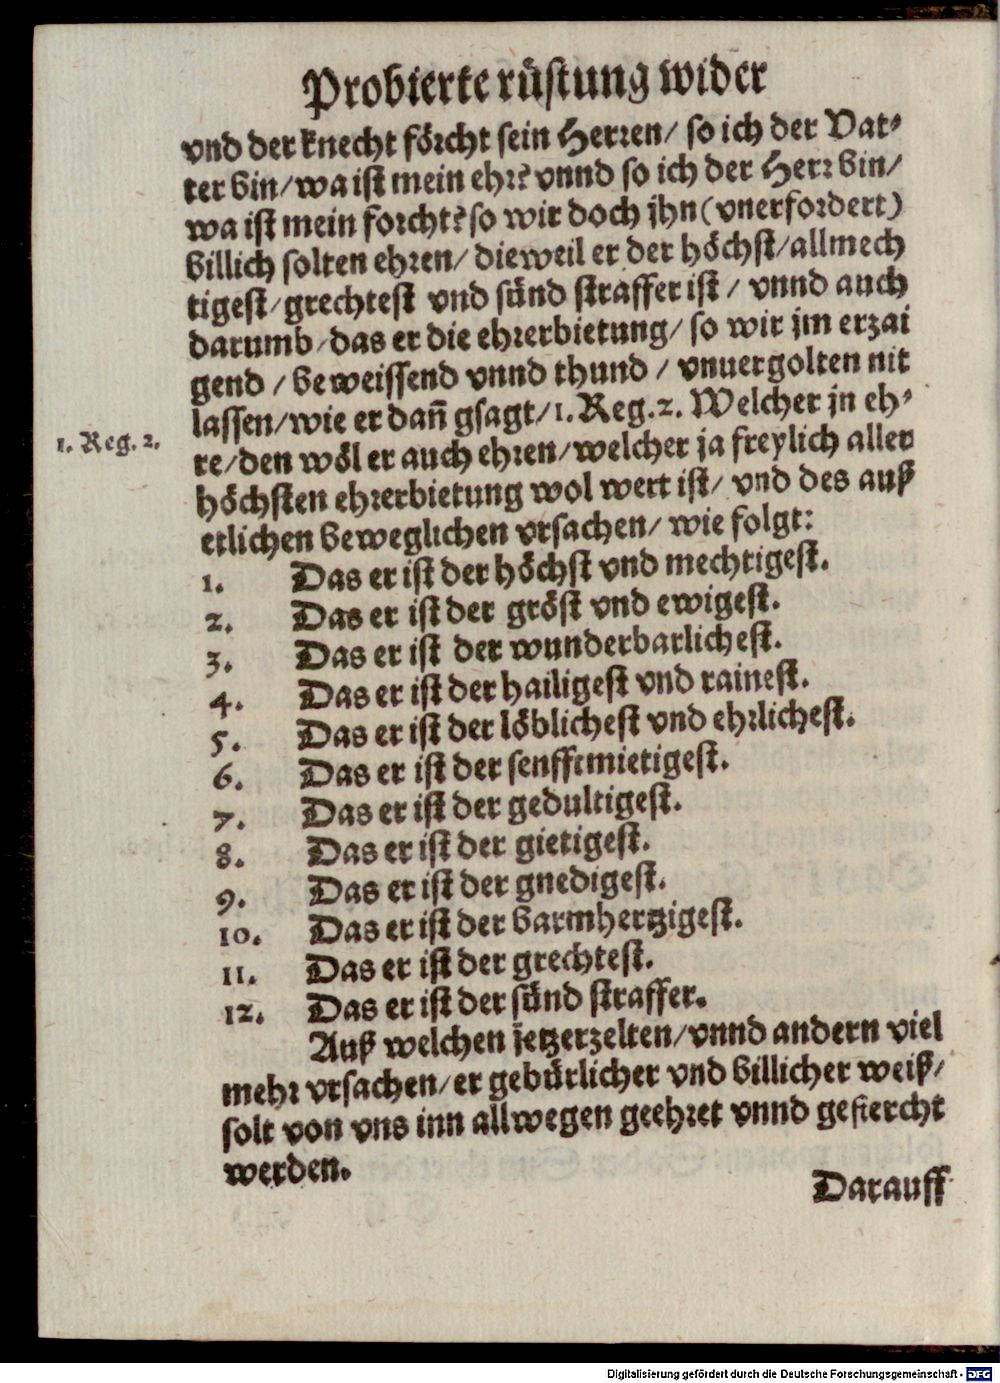 Probierte rüstung wider
vnd der knecht förcht sein Herren/ so ich der Vat⸗
ter bin/ wa ist mein ehr? vnnd so ich der Herr bin/
wa ist mein forcht? so wir doch jhn (vnerfordert)
billich solten ehren/ dieweil er der höchst/ allmech
tigest/ grechtest vnd sünd straffer ist / vnnd auch
darumb/ das er die ehrerbietung/ so wir jm erzai
gend / beweissend vnnd thund / vnuergolten nit
lassen/ wie er dañ gsagt/ 1. Reg. 2. Welcher jn eh⸗
1. Reg. 2.
re/ den wöl er auch ehren/ welcher ja freylich aller
höchsten ehrerbietung wol wert ist/ vnd des auß
etlichen beweglichen vrsachen/ wie folgt:
1. Das er ist der höchst vnd mechtigest.
2. Das er ist der gröst vnd ewigest.
3. Das er ist der wunderbarlichest.
4. Das er ist der hailigest vnd rainest.
5. Das er ist der löblichest vnd ehrlichest.
6. Das er ist der senfftmietigest.
7. Das er ist der gedultigest.
8. Das er ist der gietigest.
9. Das er ist der gnedigest.
10. Das er ist der barmhertzigest.
11. Das er ist der grechtest.
12. Das er ist der sünd straffer.
Auß welchen jetzerzelten/ vnnd andern viel
mehr vrsachen/ er gebürlicher vnd billicher weiß/
solt von vns inn allwegen geehret vnnd gefiercht
werden.
Darauff
Digitalisierung gefördert durch die Deutsche Forschungsgemeinschaft - DFG